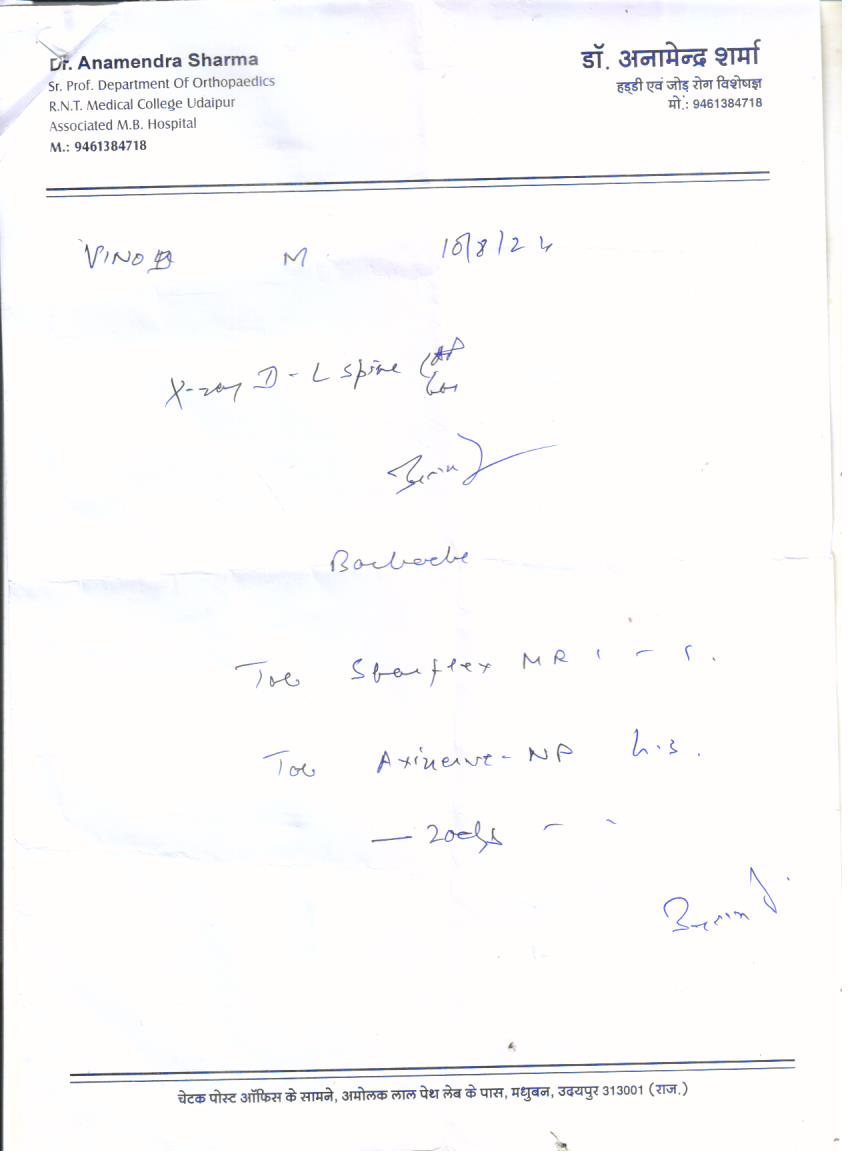 Dr. Anamendra Sharma
Sr. Prof. Department Of Orthopaedics
R.N.T. Medical College Udaipur
Associated M.B. Hospital
M.: 9461384718
डॉ. अनामेन्द्र शर्मा
हड्डी एवं जोड़ रोग विशेषज्ञ
मो.: 9461384718
VINOD M 10/8/24
X-ray D-L Spine
AP
Backache
MR 1 - 1.
Tab Axinerve-NP h.s.
— 20 days
चेटक पोस्ट ऑफिस के सामने, अमोलक लाल पेथ लेब के पास, मधुबन, उदयपुर 313001 (राज.)